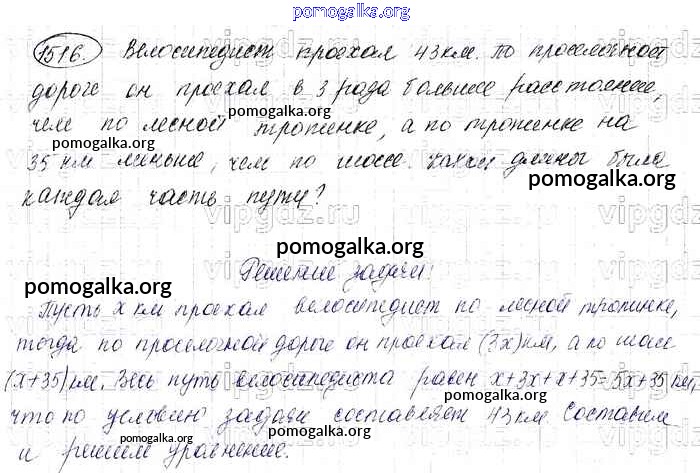 pomogalka.org
1516. Велосипедист проехал 43 км. По проселочной
дороге он проехал в 3 раза большее расстояние,
pomogalka.org
чем по лесной тропинке, а по тропинке на
pomogalka.org
35 км меньше, чем по шоссе. Какой длины была
pomogalka.org
каждая часть пути?
pomogalka.org
Решение задачи
pomogalka.org
Пусть x км проехал велосипедист по лесной тропинке,
тогда по проселочной дороге он проехал (3x) км, а по шоссе
(x+35) км. Весь путь велосипедиста равен x+3x+x+35=5x+35 км,
pomogalka.org
что по условию задачи составляет 43 км. Составим
pomogalka.org
и решим уравнение.
pomogalka.org